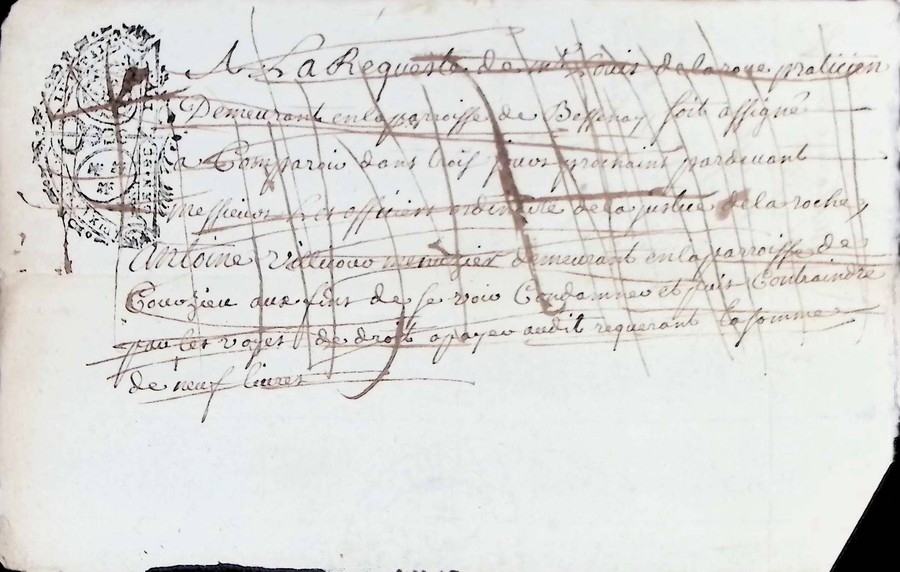 A La Requeste de mre Louis delaroue praticien
Demeurant enlaparroisse de Bessenay soit assigné
a Comparoir dans trois jours prochains pardevant
messieurs Les officiers ordinaire dela justice de la roche
Antoine menuzier demeurant enlaparroisse de
Courzieu aux fins de se voir Condamner et puis Contraindre
par les voyes de droit apayer audit requerant la somme
de neuf livres